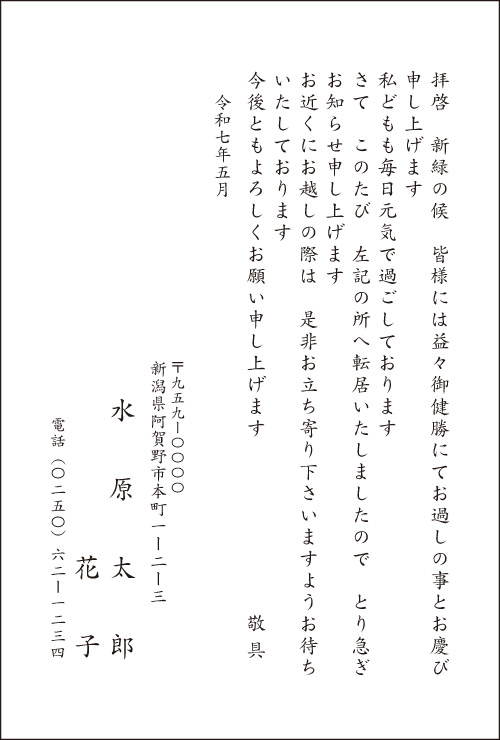 拝啓　新緑の候　皆様には益々御健勝にてお過しの事とお慶び
申し上げます
私どもも毎日元気で過ごしております
さて　このたび　左記の所へ転居いたしましたので　とり急ぎ
お知らせ申し上げます
お近くにお越しの際は　是非お立ち寄り下さいますようお待ち
いたしております
今後ともよろしくお願い申し上げます　敬具
令和七年五月
〒九五九ー〇〇〇〇
新潟県阿賀野市本町一ー二ー三
水原太郎
花子
電話（〇二五〇）六二ー一二三四